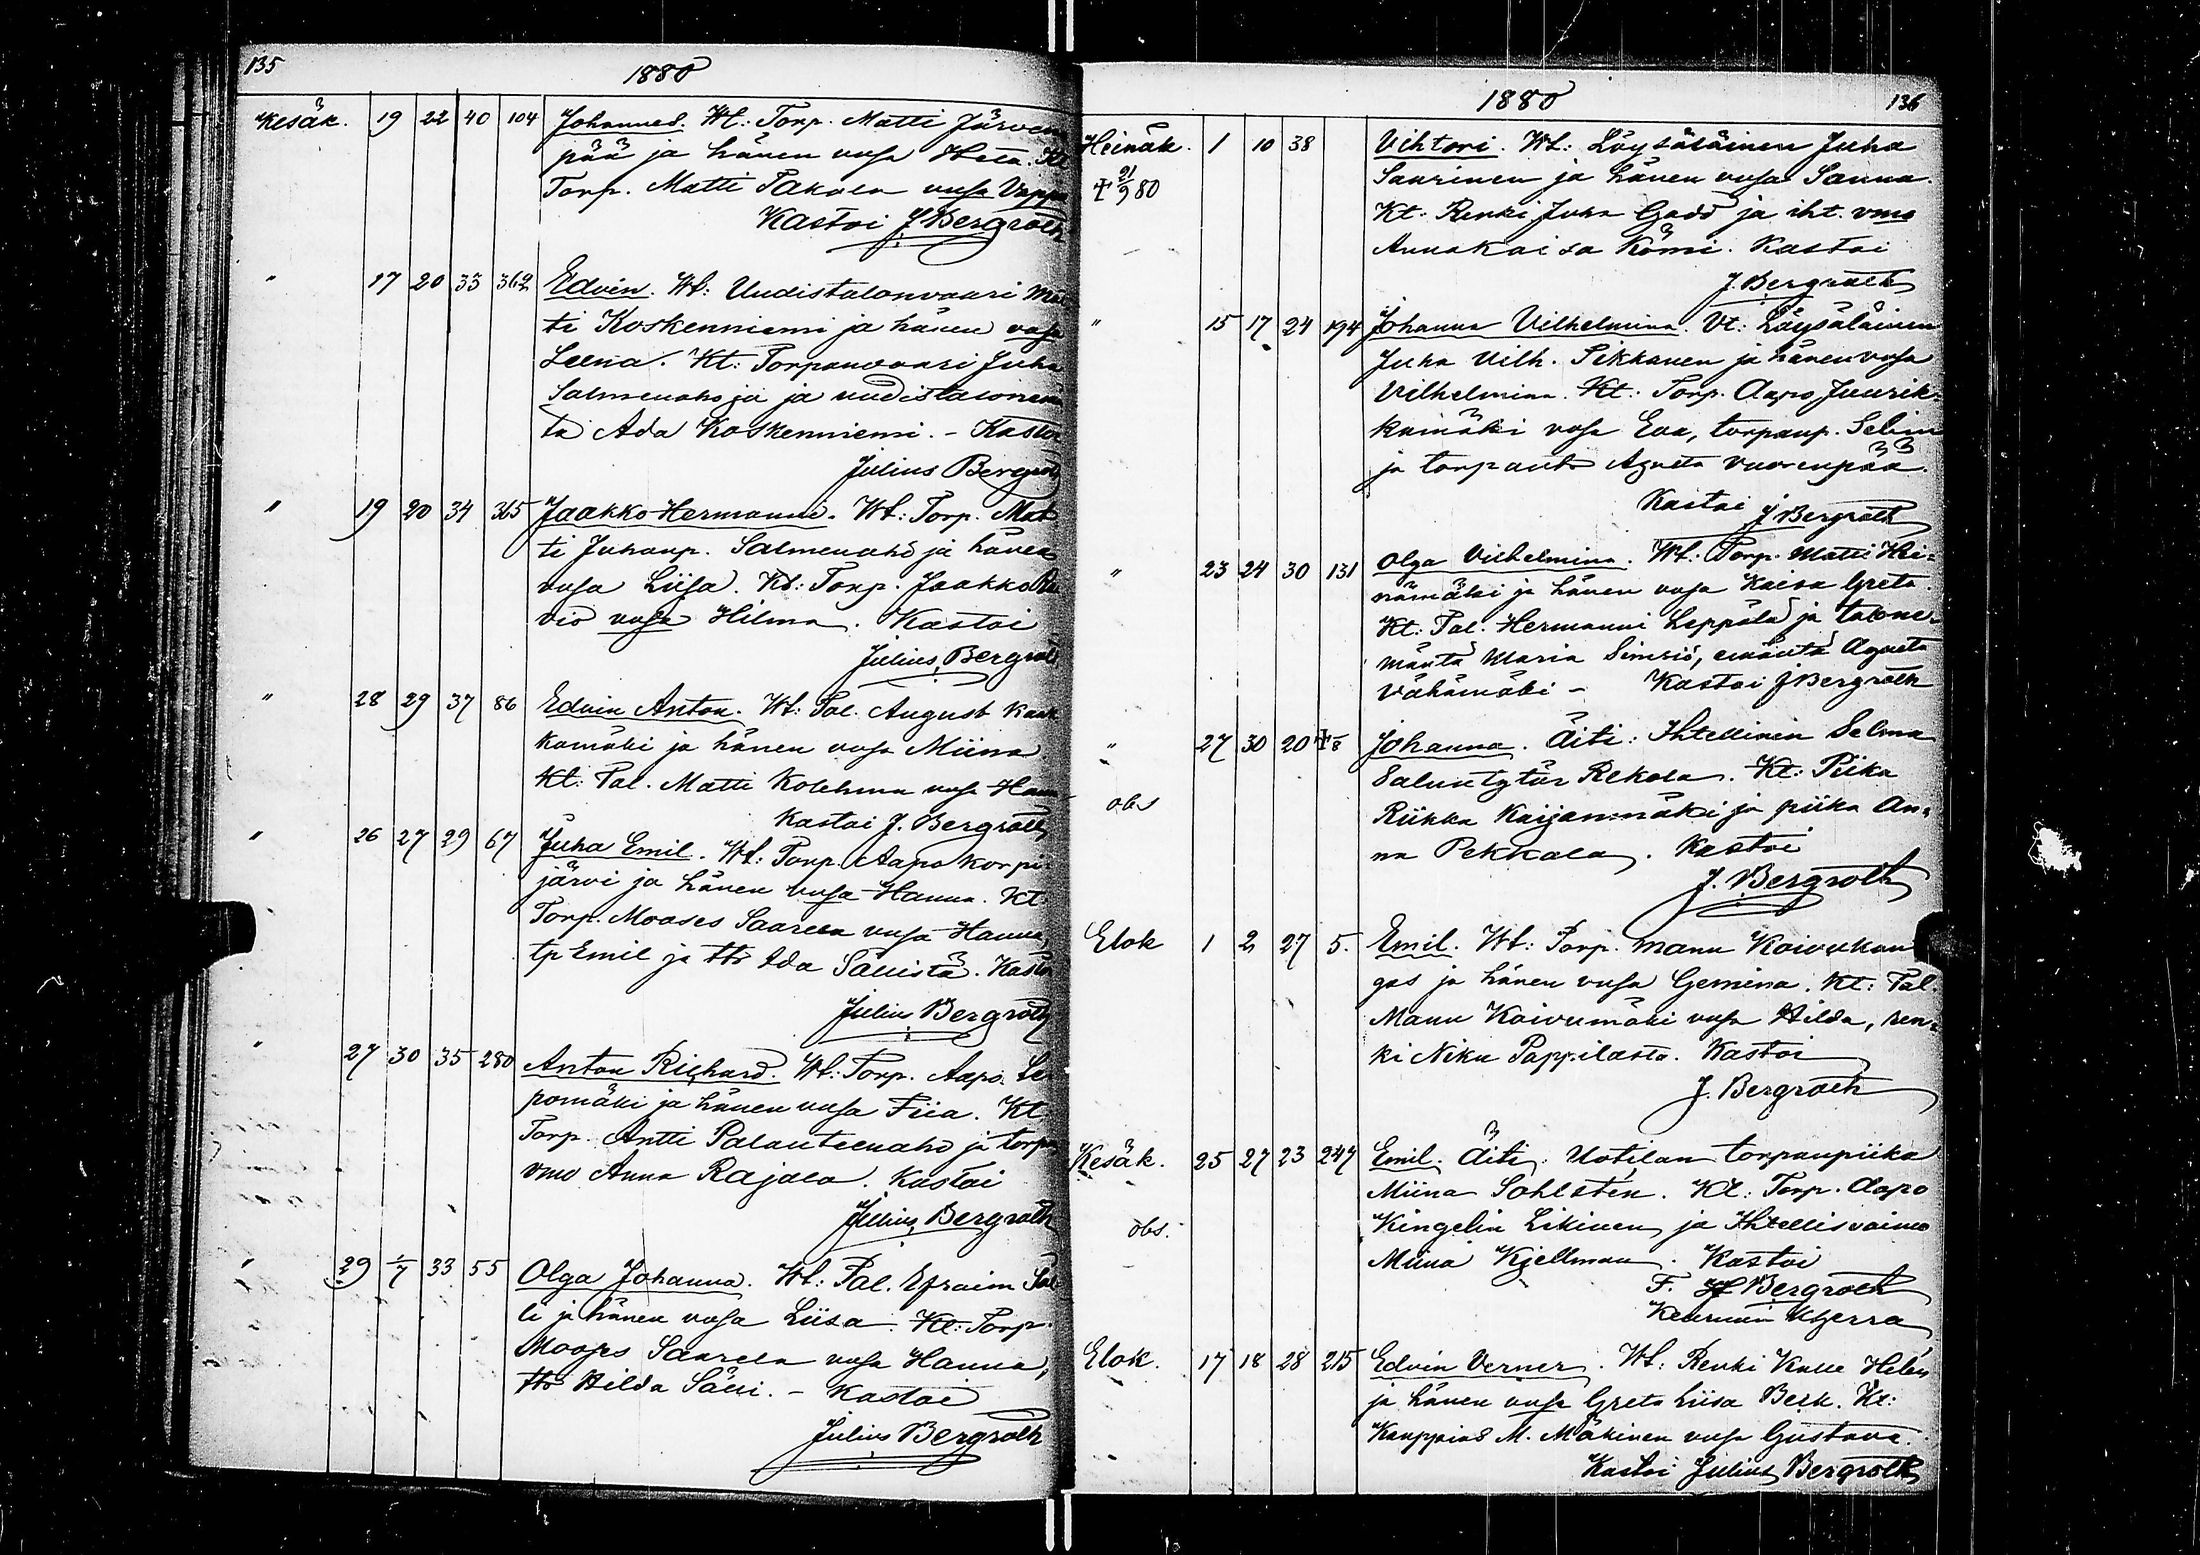 135
1880
Kesäk. 19 22 40 104 Johannes. Wt: Torp. Matti Järven
pää ja hänen vmsa Heta. Kt
Torp. Matti Takala vmsa Vappu
Kastoi J Bergroth
" 17 20 33 362 Edvin. Wt: Uudistalonvaari Mat
ti Koskenniemi ja hänen vmsa
Leena. Kt: Torpanvaari Juha
Salmenaho ja ja uudistalonemän
tä Ada Koskenniemi. - Kastoi
Julius Bergroth
" 19 20 34 365 Jaakko Hermanni. Wt: Torp. Mat
ti Juhanp. Salmenaho ja hänen
vmsa Liisa. Kt: Torp. Jaakko
vio vmsa Hilma. Kastoi
Julius Bergroth
" 28 29 37 86 Edvin Anton. Wt: Tal. August
kamäki ja hänen vmsa Miina
Kt: Tal. Matti Kolehma vmsa Hanna
Kastoi J. Bergroth
" 26 27 29 67 Juha Emil. Wt: Torp. Aapo Korpi
järvi ja hänen vmsa Hanna. Kt:
Torp. Mooses Saarela vmsa Hanna,
tp Emil ja ttr Ida Sällistä. Kastoi
Julius Bergroth
" 27 30 35 280 Anton Richard. Wt: Torp. Aapo Le
pomäki ja hänen vmsa Fiia. Kt
Torp. Antti Palanteenaho ja torpp
vmo Anna Rajala. Kastoi
Julius Bergroth
" 29 1/7 33 55 Olga Johanna. Wt: Tal. Efraim Säl
li ja hänen vmsa Liisa. Kt: Torp.
Mooses Saarela vmsa Hanna,
ttr Hilda Sälli. - Kastoi
Julius Bergroth
1880
136
Heinäk. 1 10 38 Vihtori. Wt: Löysäläinen Juha
† 21/9 80 Saarinen ja hänen vmsa Sanna.
Kt: Renki Juha Gadd ja iht. vmo
Annakaisa Kömi. Kastoi
J. Bergroth
" 15 17 24 194 Johanna Vilhelmina. Vt: Löysäläinen
Juha Vilh. Sikkanen ja hänen vmsa
Vilhelmina. Kt: Torp. Aapo Juurik=
kamäki vmsa Eva, torpanp. Selim
ja torpantr Agneta Vuorenpää.
Kastoi J Bergroth
" 23 24 30 131 Olga Vilhelmina. Wt: Torp. Matti Hei=
nämäki ja hänen vmsa Kaisa Greta.
Kt: Tal. Hermanni Leppälä ja talone=
mäntä Maria Simsiö, emäntä Agneta
Vähämäki - Kastoi J Bergroth
" 27 30 20 † /8 Johanna. Äiti: Ihtellinen Selma
Saluntytär Rekola. Kt: Piika
obs Riikka Kaijanmäki ja piika An=
na Pekkala. Kastoi
J. Bergroth
Elok 1 2 27 5. Emil. Wt: Torp. Manu Koivukan
gas ja hänen vmsa Gemina. Kt: Tal.
Manu Koivumäki vmsa Hilda, ren=
ki Niku Pappilasta. Kastoi
J. Bergroth
Kesäk. 25 27 23 247 Emil. Äiti: Uotilan torpanpiika
Miina Sohlsten. Kt: Torp. Aapo
obs. Kingelin Likinen ja Ihtellisvaimo
Miina Kjellman. Kastoi
F. H Bergroth
Keuruun kherra
Elok. 17 18 28 215 Edvin Verner. Wt: Renki Kalle Helén
ja hänen vmsa Greta Liisa Berk. Kt:
Kauppias M. Mäkinen vmsa Gustava.
Kastoi Julius Bergroth